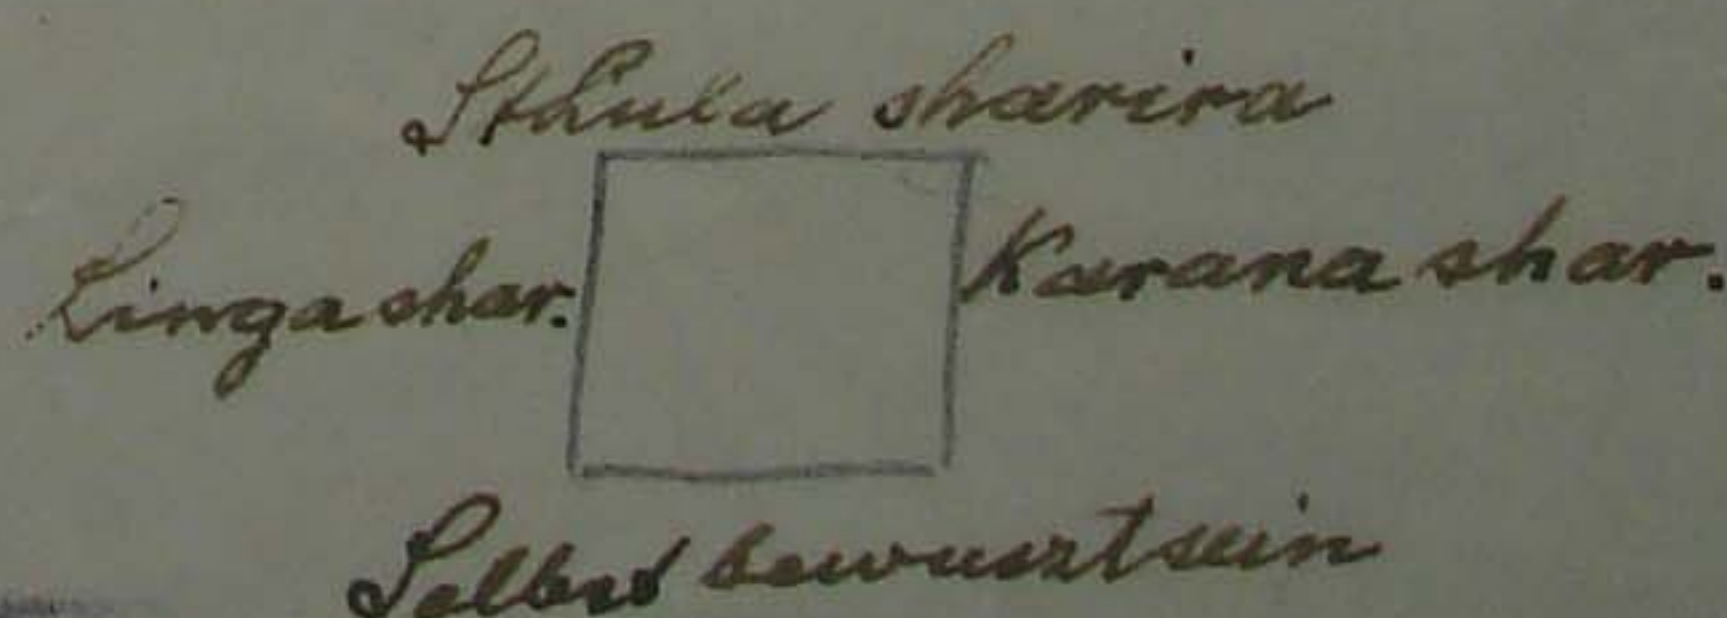 Sthula sharira
Linga shar.
Karana shar.
Selbst bewusztsein